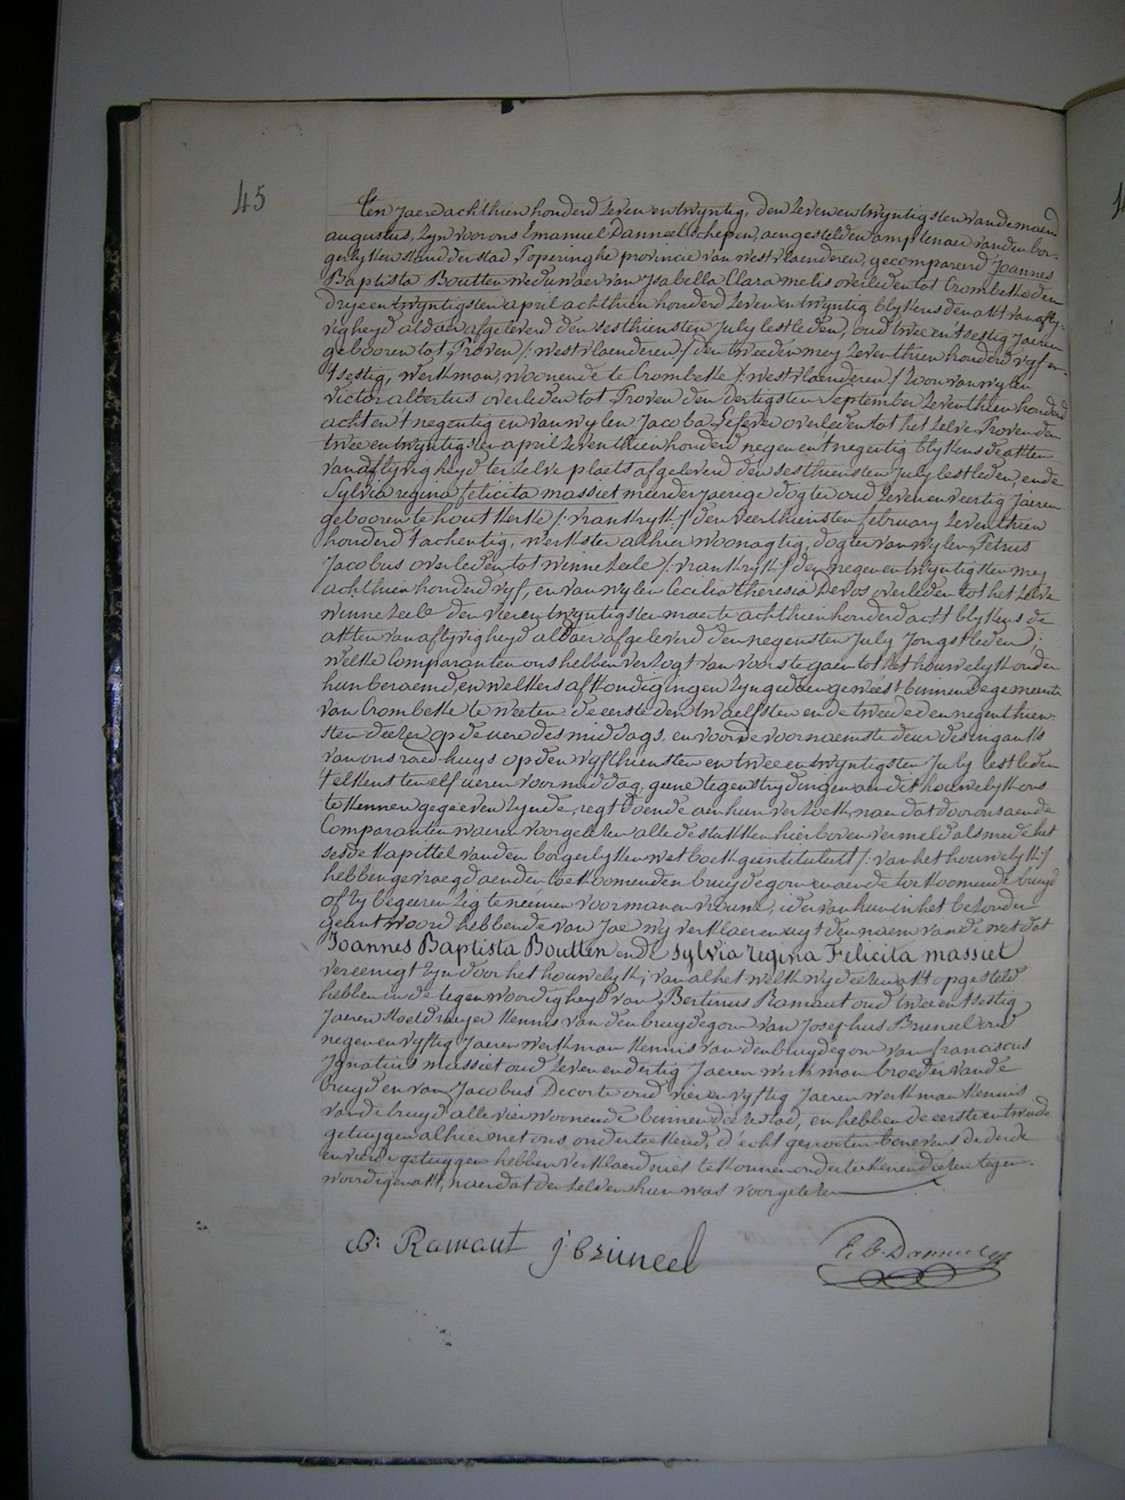 45
Ten jaere achthien honderd zeven en twyntig, den zeven en twyntigsten van de maend
augustus, zyn voor ons Emanuel Danneel schepen, aengestelden amptenaer van den bor-
gerlyken stand der stad Poperinghe provincie van westvlaenderen, gecompareerd Joannes
Baptista Boutten weduwaer van Isabella Clara melis overleden tot Crombeke den
drye en twyntigsten april achthien honderd zeven en twyntig blykens den akt van afly-
vigheyd aldaer afgeleverd den sesthiensten July lestleden, oud twee en tsestig Jaeren
gebooren tot Proven /: westvlaenderen :/ den tweeden mey zeventhien honderd vyf en
tsestig, werkman, woonende te Crombeke /: westvlaenderen :/ zoon van wylen
victor albertus overleden tot Proven den dertigsten September zeventhien honderd
acht en t negentig en van wylen Jacoba Lefever overleden tot het zelve Proven den
twee en twyntigsten april zeventhien honderd negen en t negentig blykens de akten
van aflyvigheyd ter zelve plaets afgeleverd den sesthiensten July lestleden, ende
Sylvia regina felicita massiet meerderjaerige dogter oud zeven en veertig Jaeren
gebooren te houtkerke /: vrankryk :/ den veerthiensten february zeventhien
honderd tachentig, werkster alhier woonagtig, dogter van wylen Petrus
Jacobus overleden tot winnezeele /: vrankryk :/ den negen en twyntigsten mey
achthien honderd vyf, en van wylen Cecilia theresia Devos overleden tot het zelve
winnezeele den vier en twyntigsten maerte achthien honderd acht blykens de
akten van aflyvigheyd aldaer afgeleverd den negensten July Jongstleden;
welke Comparanten ons hebben verzogt van voorts te gaen tot het houwelyk onder
hun beraemd, en welkers afkondigingen zyn gedaen geweest binnen de gemeente
van Crombeke te weeten: de eerste den twaelfsten ende tweede den negenthien-
sten dezer op de uere des middags, en voor de voornaemste deur des ingangs
van ons raedhuys op den vyfthiensten en twee en twyntigsten July lestleden
telkens ten elf ueren voormiddag, geene tegenstrydingen aen dit houwelyk ons
te kennen gegeeven zynde, regt doende aen hun verzoek, naer dat door ons aen de
Comparanten waeren voorgelezen alle de stukken hier boven vermeld als mede het
sesde kapittel van den borgerlyken wetboek geintituleert /: van het houwelyk :/
hebben gevraegd aen den toekoomenden bruydegom en aen de toekoomende bruyd
of zy begeeren zig te neemen voor man en vrouwe, ider van hun in het bezonder
geantwoord hebbende van Jae wy verklaeren uyt den naem van de wet dat
Joannes Baptista Boutten ende Sylvia regina Felicita massiet
vereenigt zyn door het houwelyk; van al het welk wy dezen akt opgesteld
hebben in de tegenwoordigheyd van Bertinus Ramaut oud twee en tsestig
Jaeren stoeldraeyer kennis van den bruydegom van Josephus Bruneel oud
negen en vyftig Jaeren werkman kennis van den bruydegom van franciscus
Ignatius massiet oud zeven en dertig Jaeren werkman broeder van de
bruyd en van Jacobus Decorte oud vier en vyftig Jaeren werkman kennis
van de bruyd alle vier woonende binnen deze stad, en hebben de eerste en tweede
getuygen alhier met ons onderteekend, d'echtgenooten benevens de derde
en vierde getuygen hebben verklaerd niet te konnen onderteekenen dezen tegen-
woordigen akt, naer dat den zelven hun was voorgelezen
B: Ramaut j: bruneel E. B. Danneel